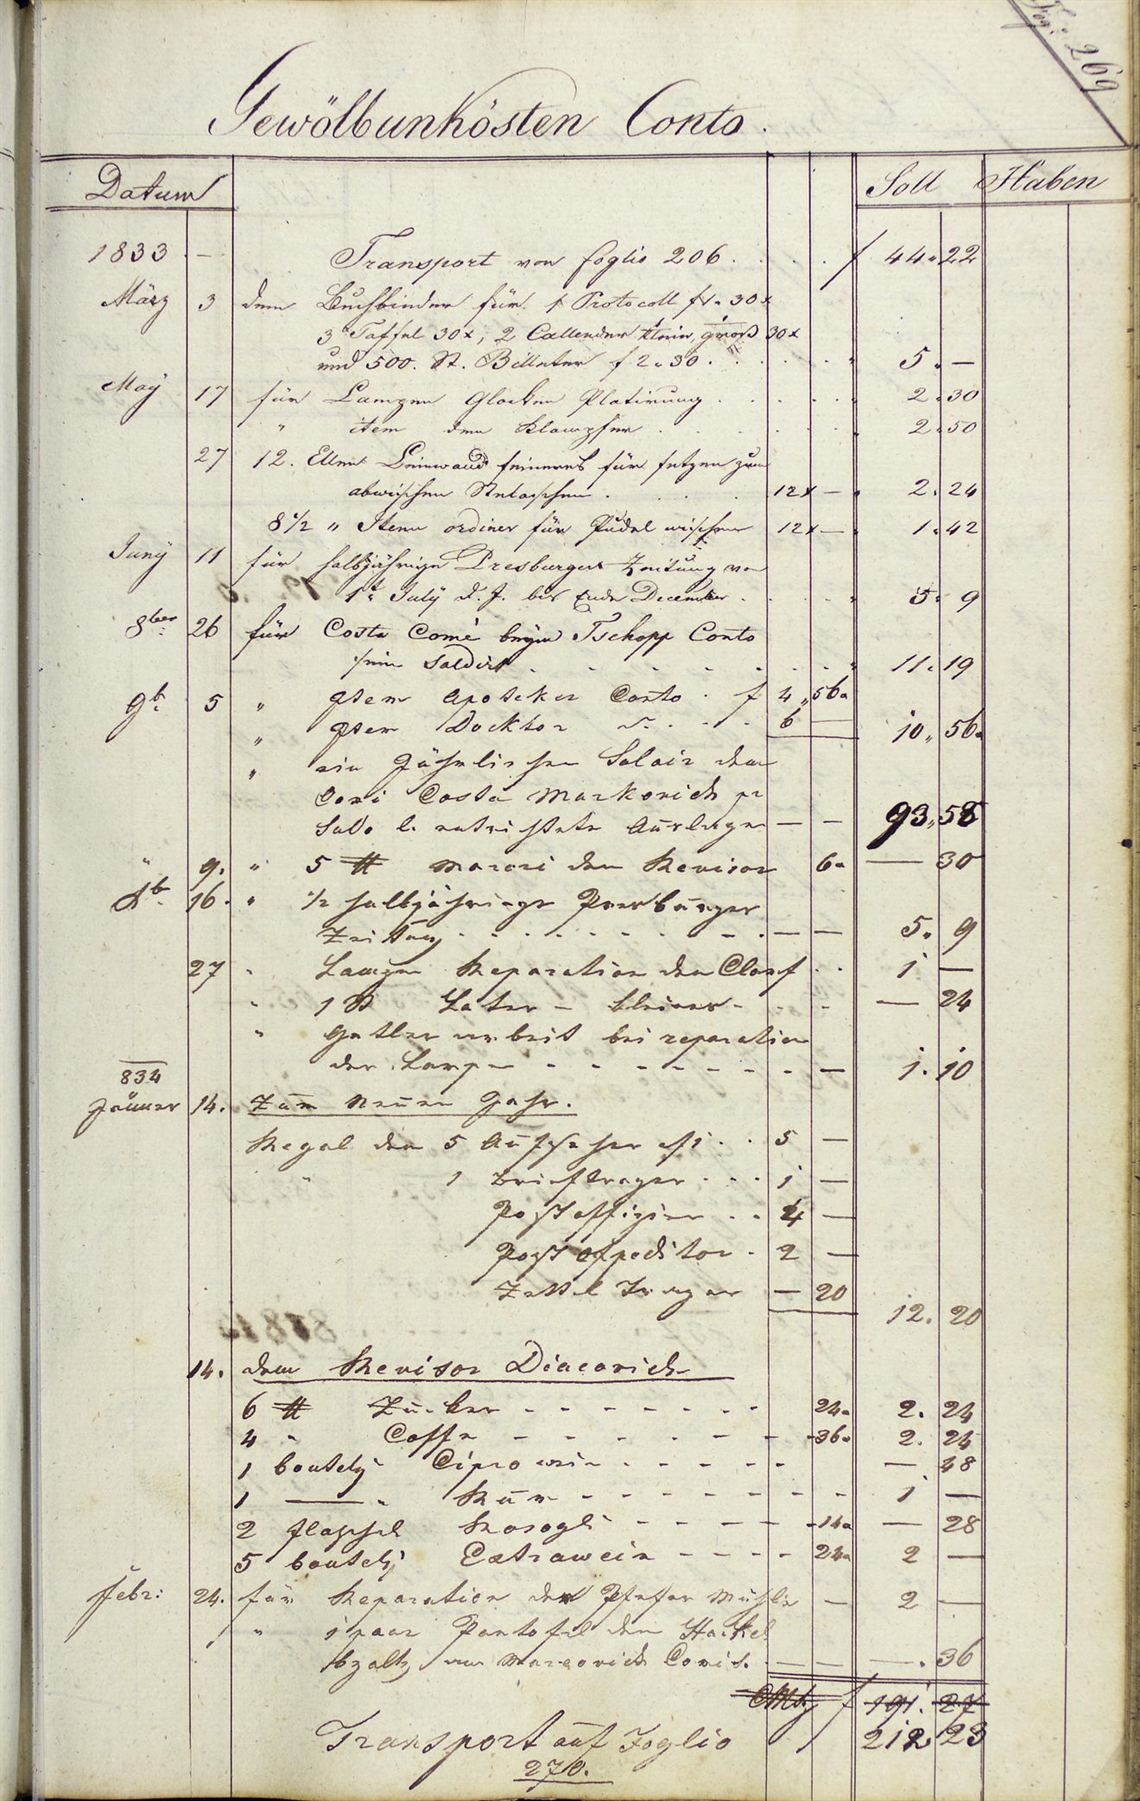 Fog: 269
Gewölbunkösten Conto.
Datum Soll Haben
1833 — Transport von foglio 206 . . . . f 44. 22
März 3 dem Buchbinder für 1 Protocoll f1. 30x
3 Taffel 30x, 2 Callender klein, gross 30x
und 500. St. Billeter f 2. 30 . . . . . 5. —
May 17 für Lampen Glocken Platirung . . . . . 2. 30
" item dem Klampfner . . . . . 2. 50
27 12. Ellen Leinwand feineres für fetzen zum
abwischen . . . . 12x — . 2. 24
8 1/2 " Item ordiner für Pudel wischen 12x — 1. 42
Juny 11 für halbjährige Presburger Zeitung von
1t July d. J. bis Ende December . . . . . 5. 9
8ber 26 für Costa Comé beym Tschopp Conto
sein Saldirt . . . . . . . . 11. 19
9b. 5 " Item Apoteker Conto . f 4 " 56.
" Item Docktor . . . 6 — 10 " 56.
" ein Jährlichen Salair dem
Comi Costa Markovich pr
Saldo — — 93 " 58
" 9. " 5 ℔ dem Revisor 6. — 30
Xb. 16. " 1/2 halbjähriger Presburger
Zeitung . . . . . . . — — 5. 9
27 " Lampen Reparation . . 1 —
" 1 St Later — kleiner . . . — 24
" Gatler arbeit bei reparation
der Lampe - - - - - - - — 1. 10
834
Jänner 14. Zum Neuen Jahr.
Regal den 5 Aufseher àf1 . . 5 —
" 1 Briefträger . . . 1 —
Post offizier . . 4 —
Post Expeditor . 2 —
Zettel Trager — 20 12. 20
14. dem Revisor Diacovich
6 ℔ Zucker - - - - - - - 24. 2. 24
4 " Coffe - - - - - - - 36. 2. 24
1 boutely Cipro wein . . . . . — 48
1 —— " Rum - - - - - - - - 1 —
2 flaschel Rosogli - - - - - 14. — 28
5 boutely Extrawein - - - - 24. 2 —
Febr: 24. für Reparation der Pfefer Mühle — 2 —
" 1 paar Pantofel dem
bzalt von Marcovich Comis. — — —. 36
f 191. 27
Transport auf Foglio 212. 23
270.